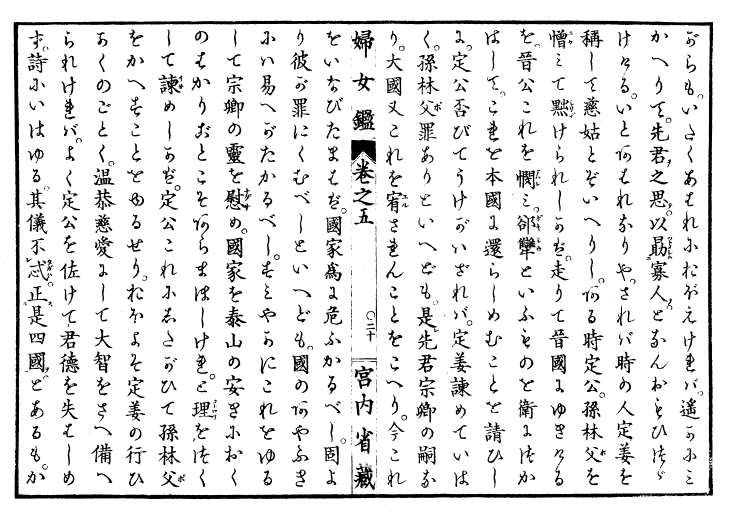 がらも。いたくあはれにおぼえければ。遥かにミ
かへりて。先君之思。以勗寡人となんおもひつゞ
けける。いとあはれなりや。されバ時の人定姜を
稱して慈姑とぞいへりし。ある時定公。孫林父を
憎ミて黜けられしかば。走りて晉國にゆきける
を。晉公これを憫ミ。郤犨といふものを衛につか
はして。これを本國に還らしめむことを請ひし
に。定公否びてうけがいざれバ。定姜諫めていは
く。孫林父罪ありといへども。是先君宗卿の嗣な
り。大國又これを宥されんことをこへり。今これ
婦女鑑 卷之五 ○二十 宮内省藏
をいなびたまはば。國家爲に危ふかるべし。固よ
り彼が罪にくむべしといへども。國のあやふき
にハ易へがたかるべし。すミやかにこれをゆる
して宗卿の靈を慰め。國家を泰山の安きにおく
のはかりごとこそあらまほしけれ。と理をつく
して諫めしかば。定公これにしたがひて孫林父
をかへすことをゆるせり。おほよそ定姜の行ひ
かくのごとく。温恭慈愛にして大智をさへ備へ
られければ。よく定公を佐けて君德を失はしめ
ず。詩にいはゆる。其儀不忒。正是四國。とあるもか